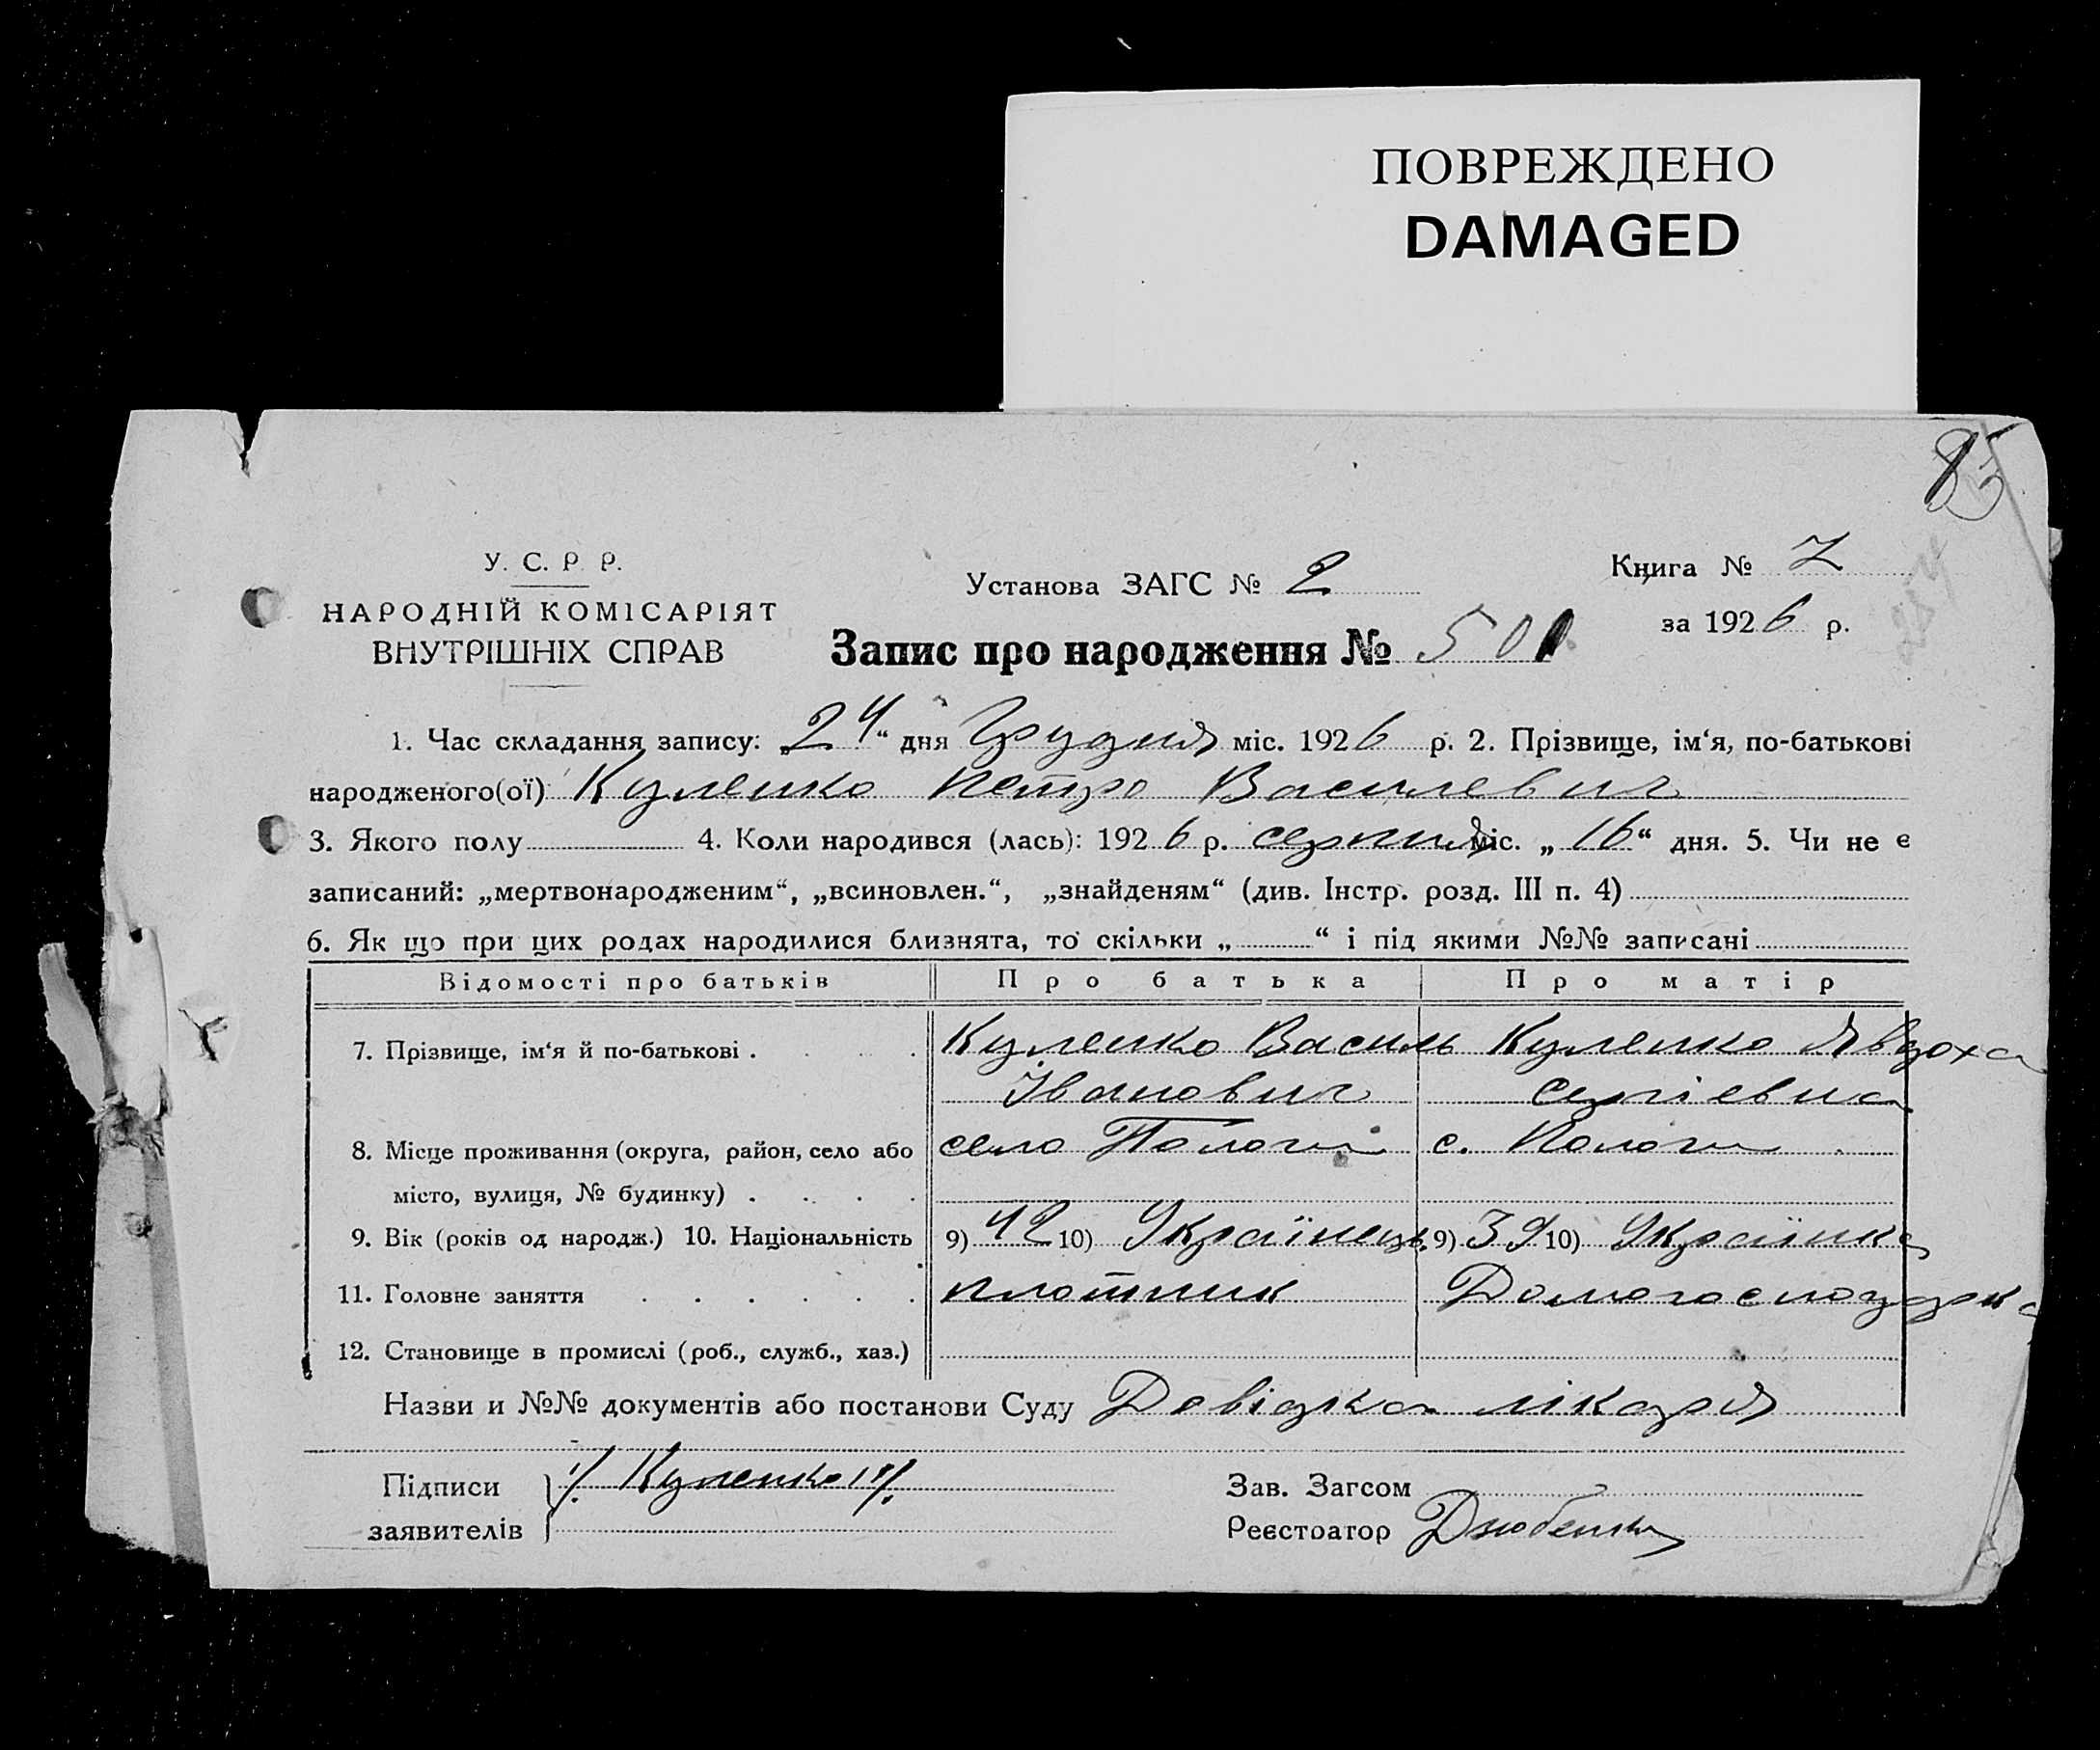 ПОВРЕЖДЕНО
DAMAGED
85
У. С. Р. Р.
НАРОДНІЙ КОМІСАРІЯТ
ВНУТРІШНІХ СПРАВ
Установа ЗАГС № 2
Запис про народження № 501
Книга № 2
за 1926 р.
1. Час складання запису: „24“ дня Грудня міс. 1926 р. 2. Прізвище, ім‘я, по-батькові
народженого(ої) Куленко Петро Василевич
3. Якого полу 4. Коли народився (лась): 1926 р. серпня міс. „16“ дня. 5. Чи не є
записаний: „мертвонародженим“, „всиновлен.“, „знайденям“ (див. Інстр. розд. III п. 4)
6. Як що при цих родах народилися близнята, то скільки „ “ і під якими №№ записані
Відомості про батьків Про батька Про матір
7. Прізвище, ім‘я й по-батькові . . . . Куленко Василь Куленко Явдоха
Іванович Сергіевна
8. Місце проживання (округа, район, село або село Пологи с. Пологи
місто, вулиця, № будинку) . . . .
9. Вік (років од народж.) 10. Національність 9) 42 10) Українець 9) 39 10) Українка
11. Головне заняття . . . . . . плотник Домогосподарка
12. Становище в промислі (роб., служб., хаз.)
Назви и №№ документів або постанови Суду Довідка лікаря
Підписи /Куленко/
заявителів
Зав. Загсом
Реєстратор